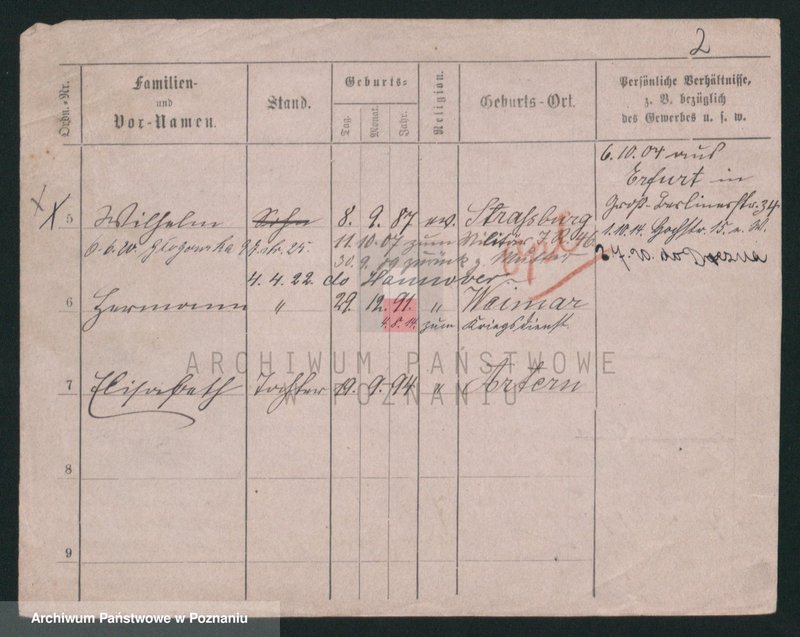 2
Ordn.-Nr.
Familien-
und
Vor-Namen.
Stand.
Geburts-
Tag.
Monat.
Jahr.
Religion.
Geburts-Ort.
Persönliche Verhältnisse,
z. B. bezüglich
des Gewerbes u. s. w.
6.10.04 aus
Erfurt in
Groß-Berlinerstr. 34
5 Wilhelm Sohn 8. 9. 87 ev. Straßburg
1.10.14. Hochstr. 15.
6.6.20. Glogowska
11.10.07 zum Militär J. R. 46
30. 9. 09 zurück z. Mutter
7. 20. do
4.4.22. do Hannover
6 Hermann " 29. 12. 91. " Weimar
4. 8. 14. zum Kriegsdienst.
7 Elisabeth Tochter 19. 9. 94. " Artern
8
9
ARCHIWUM PAŃSTWOWE
W POZNANIU
Archiwum Państwowe w Poznaniu